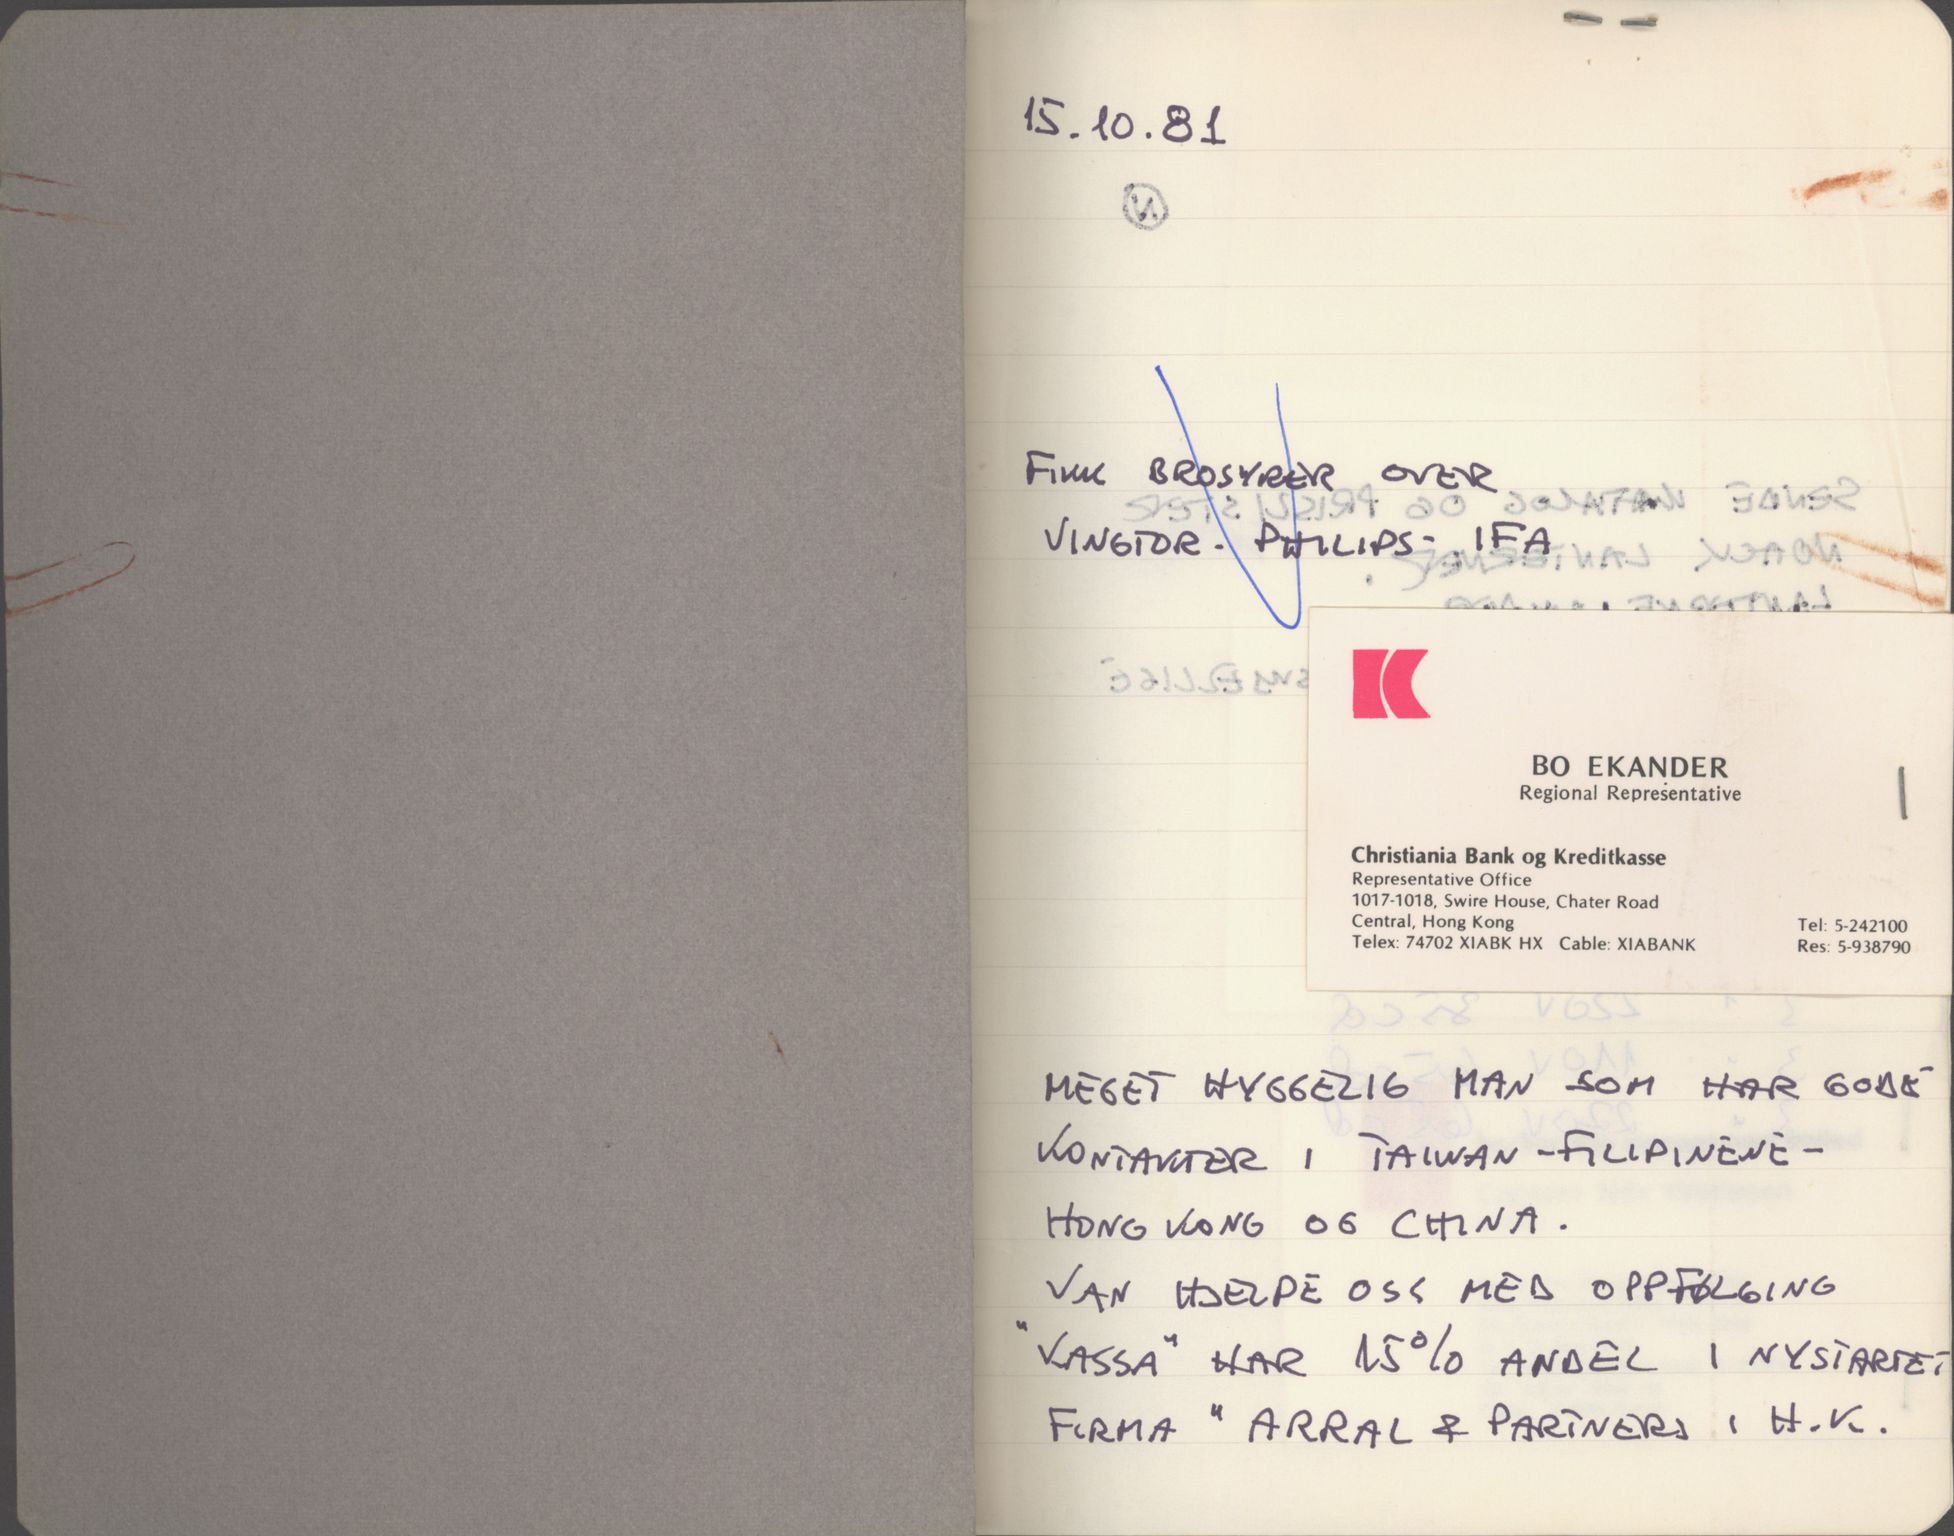 15.10.81
FIKK BROSYRER OVER
VINGTOR - PHILIPS - IFA
BO EKANDER
Regional Representative
Christiania Bank og Kreditkasse
Representative Office
1017-1018, Swire House, Chater Road
Central, Hong Kong
Tel: 5-242100
Telex: 74702 XIABK HX Cable: XIABANK
Res: 5-938790
MEGET HYGGELIG MAN SOM HAR GODE
KONTAKTER I TAIWAN - FILIPINENE -
HONG KONG OG CHINA.
KAN HJELPE OSS MED OPPFØLGING
"KASSA" HAR 15% ANDEL I NYSTARTET
FIRMA " ARRAL & PARTNERS I H.K.